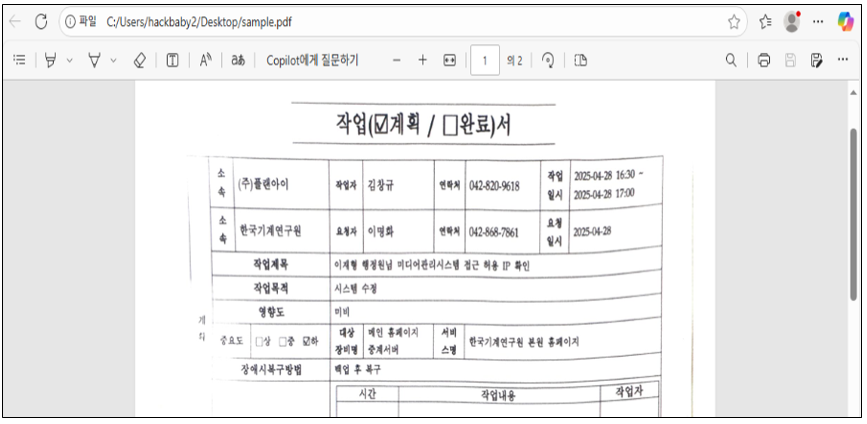 파일 C:/Users/hackbaby2/Desktop/sample.pdf
Copilot에게 질문하기 1 의 2
작업(☑계획 / ☐완료)서
소속 (주)플랜아이 작업자 김창규 연락처 042-820-9618 작업일시 2025-04-28 16:30 ~ 2025-04-28 17:00
소속 한국기계연구원 요청자 이명화 연락처 042-868-7861 요청일시 2025-04-28
작업제목 이재형 행정원님 미디어관리시스템 접근 허용 IP 확인
작업목적 시스템 수정
영향도 미비
중요도 ☐상 ☐중 ☑하 대상장비명 메인 홈페이지 중계서버 서비스명 한국기계연구원 본원 홈페이지
장애시복구방법 백업 후 복구
시간 작업내용 작업자